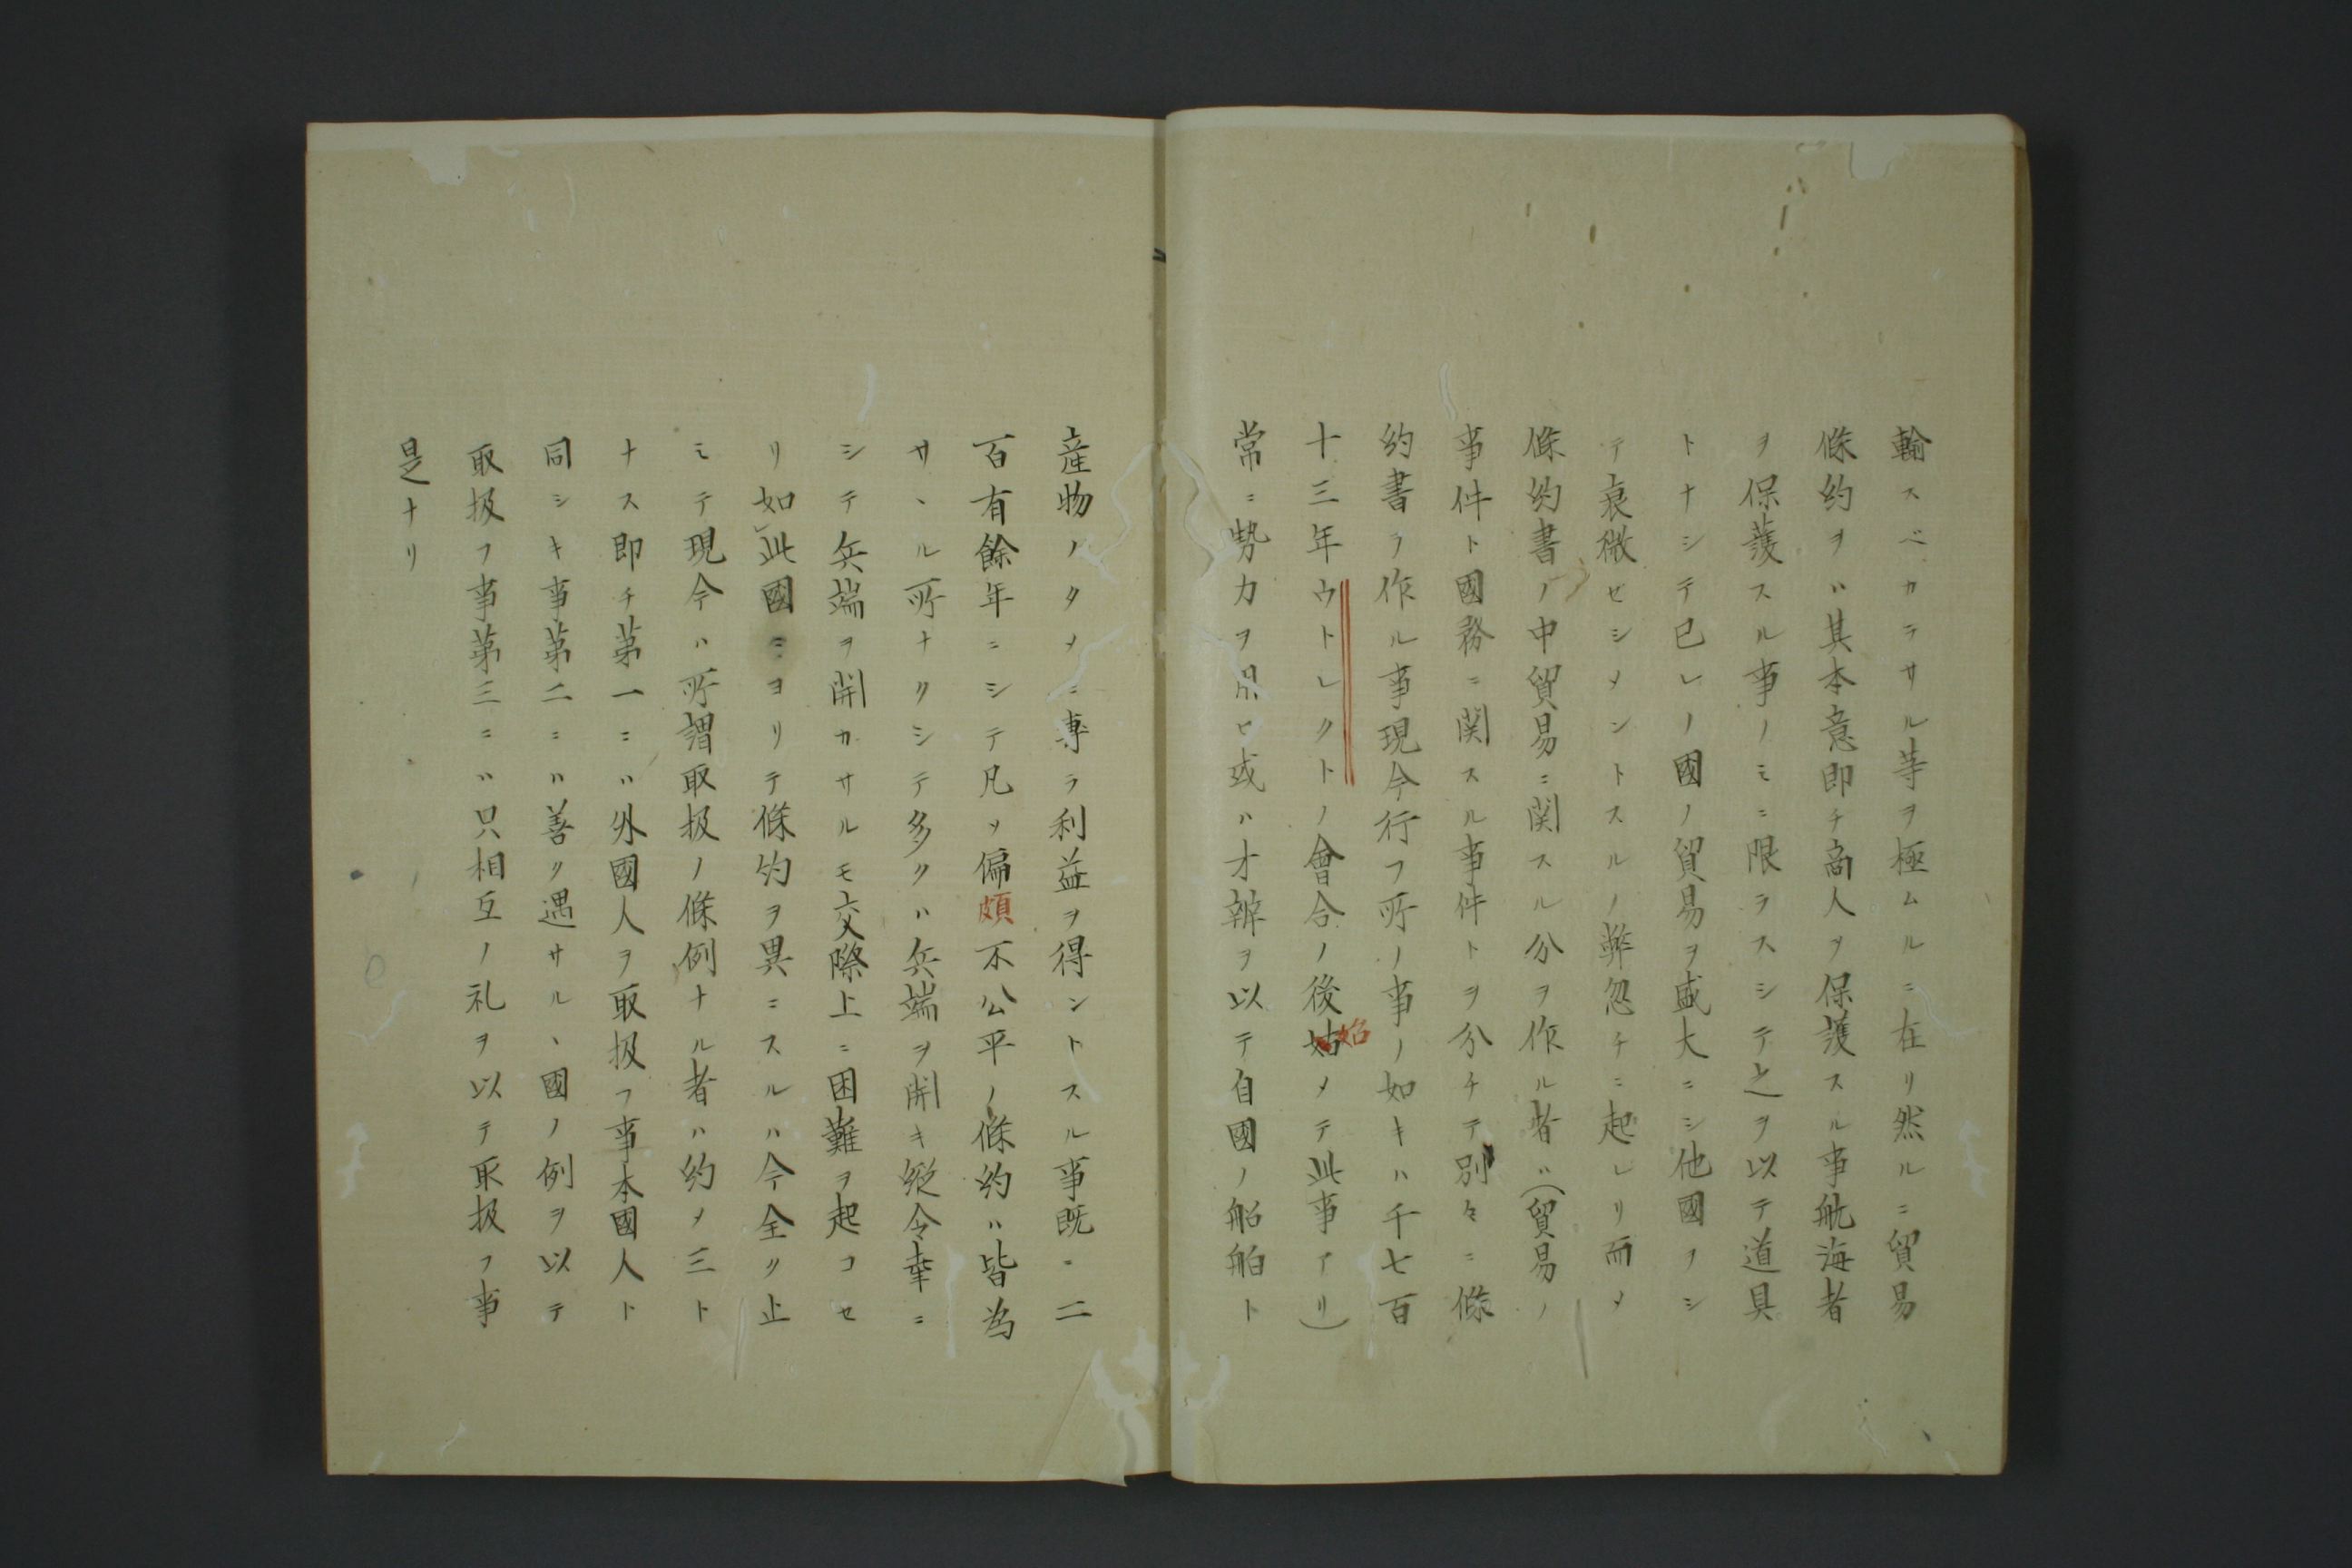 輸スベカラサル等ヲ極ムルニ在リ然ルニ貿易
條約ヲハ其本意即チ商人ヲ保護スル事航海者
ヲ保護スル事ノミニ限ラスシテ之ヲ以テ道具
トナシテ已レノ國ノ貿易ヲ盛大ニシ他國ヲシ
テ衰微セシメントスルノ弊忽チニ起レリ而メ
條約書ノ中貿易ニ関スル分ヲ作ル者ハ(貿易ノ
事件ト國務ニ関スル事件トヲ分チテ別々ニ條
約書ヲ作ル事現今行フ所ノ事ノ如キハ千七百
十三年ウトレクトノ會合ノ後始メテ此事アリ)
常ニ勢力ヲ用ヒ或ハ才辨ヲ以テ自國ノ船舶ト
産物ノタメニ専ラ利益ヲ得ントスル事既ニ二
百有餘年ニシテ凡ソ偏頗不公平ノ條約ハ皆為
サヽル所ナクシテ多クハ兵端ヲ開キ縦令幸ニ
シテ兵端ヲ開カサルモ交際上ニ困難ヲ起コセ
リ如此國ニヨリテ條約ヲ異ニスルハ今全ク止
ミテ現今ハ所謂取扱ノ條例ナル者ハ約メ三ト
ナス即チ第一ニハ外國人ヲ取扱フ事本國人ト
同シキ事第二ニハ善ク遇サルヽ國ノ例ヲ以テ
取扱フ事第三ニハ只相互ノ礼ヲ以テ取扱フ事
是ナリ